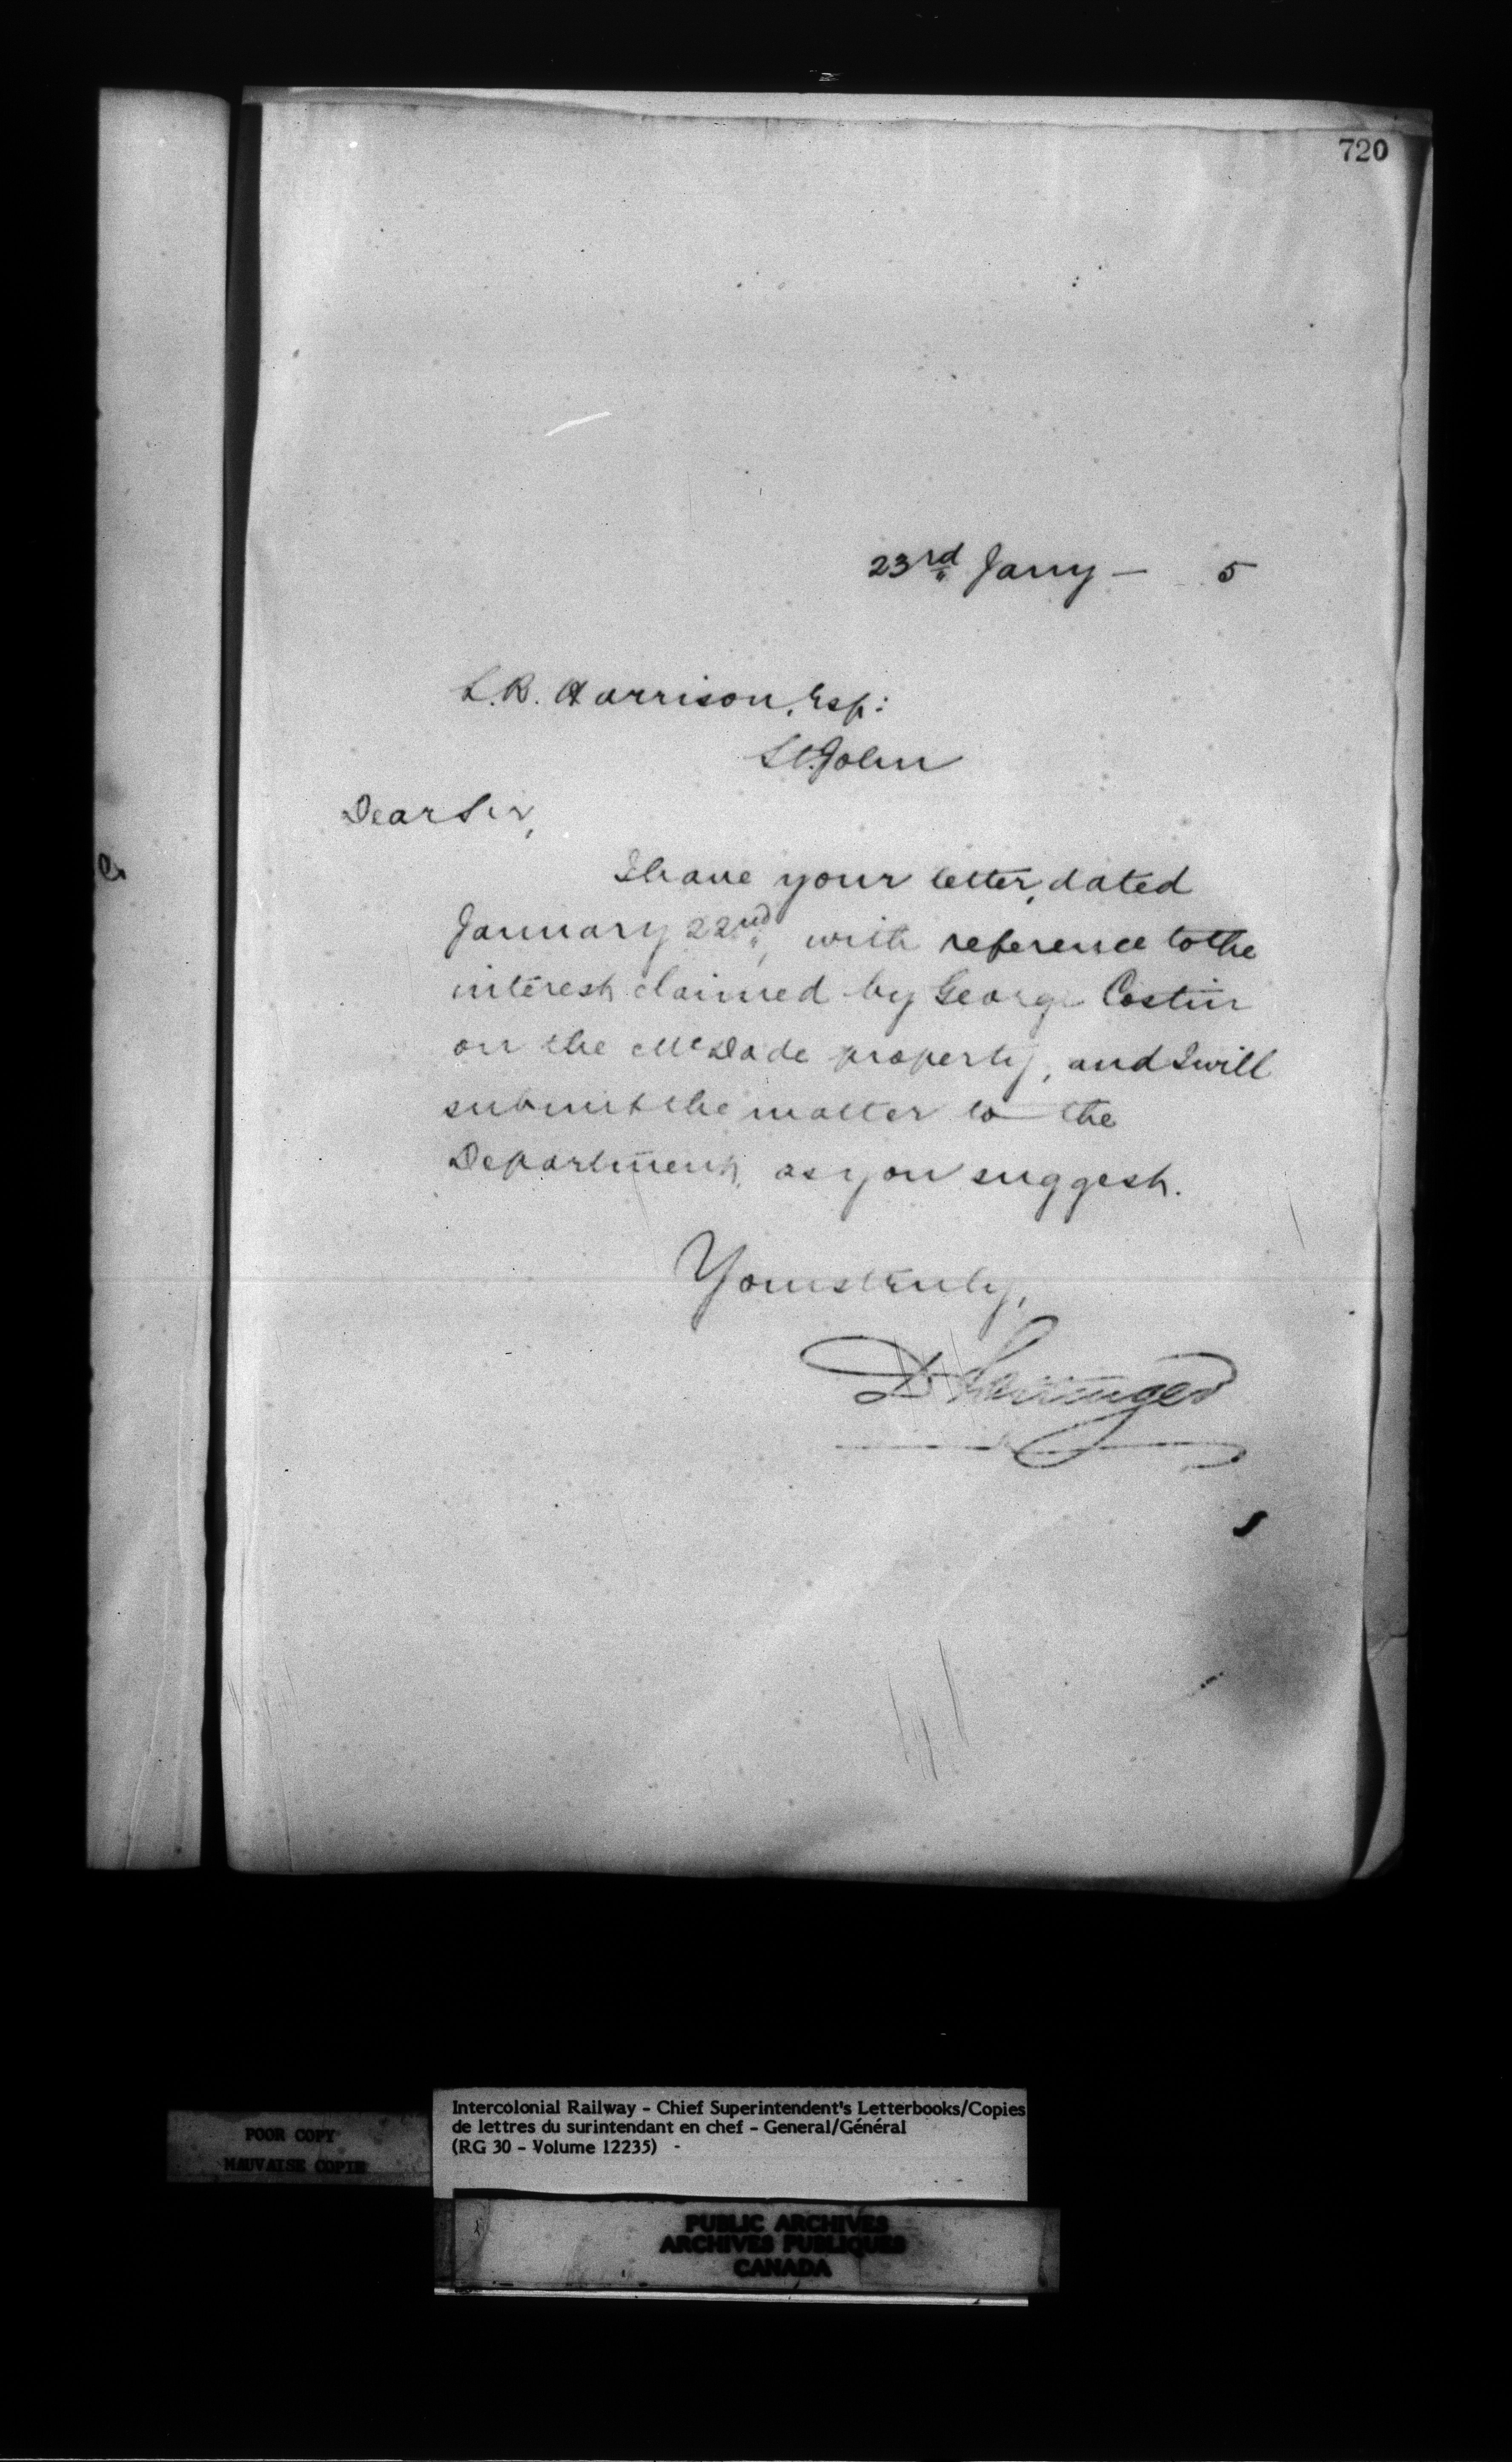 720
23rd Jany — 5
L.R. Harrison, Esq:
St. John
Dear Sir,
I have your letter, dated
January 22nd, with reference to the
interest claimed by George Costin
on the McDade property, and I will
submit the matter to the
Department, as you suggest.
Yours truly,
D Pottinger
POOR COPY
MAUVAISE COPIE
Intercolonial Railway - Chief Superintendent's Letterbooks/Copies
de lettres du surintendant en chef - General/Général
(RG 30 - Volume 12235) -
PUBLIC ARCHIVES
ARCHIVES PUBLIQUES
CANADA